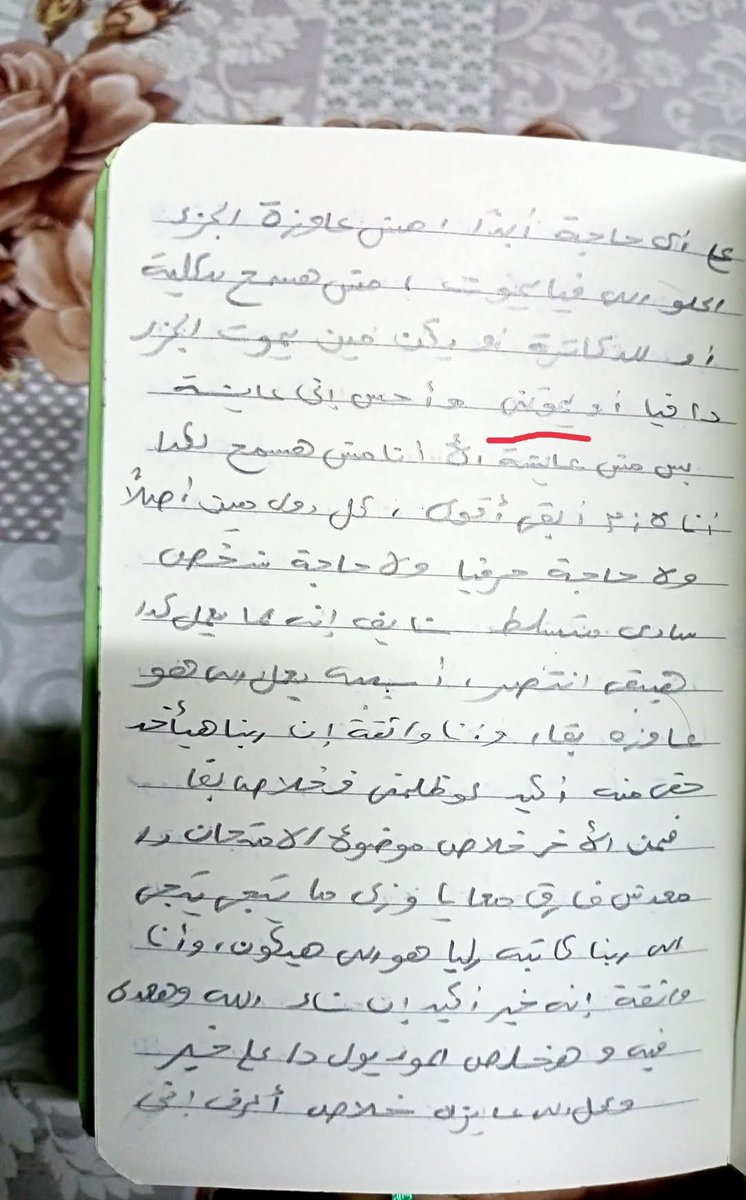 على أي حاجة أبدًا، مش عاوزة الجزء
الحلو اللي فيا يموت، مش هسمح لكلية
أو للدكاترة يموت الجزء
دا فيا أو وأحس إني عايشة
بس مش عايشة لأ أنا مش هسمح لكدا
أنا لازم أبقى أقوى، كل دول مش أصلًا
ولا حاجة حرفيا ولا حاجة شخص
سادي متسلط شايف إنه لما يعمل كدا
هيبقى انتصر، أسيبه يعمل اللي هو
عاوزه بقا، وأنا واثقة إن ربنا هيأخد
حقي منه أكيد لو ظلمني فخلاص بقا
فمن الأخر خلاص موضوع الامتحان دا
معدش فارق معايا وزي ما تيجي تيجي
اللي ربنا كاتبه ليا هو اللي هيكون، وأنا
واثقة إنه خير أكيد إن شاء الله وهعدي
فيه وهخلص الموديول دا على خير
وعمل اللي عايزه خلاص أعرف إني